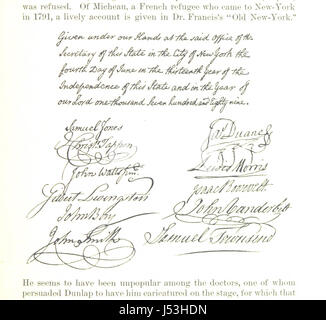 was refused. Of Michean, a French refugee who came to New-York
in 1791, a lively account is given in Dr. Francis's "Old New-York."
Given under our Hands at the said office of the
Secretary of this State in the City of New York the
fourth Day of June in the thirteenth Year of the
Independence of this State and in the Year of
our Lord one thousand seven hundred and Eighty nine.
Samuel Jones
Jas Duane
Christr Tappen
Lewis Morris
John Watts Junr
Isaac Roosevelt
Gilbert Livingston
John Vanderbilt
John Bay
John Smith
Samuel Townsend
He seems to have been unpopular among the doctors, one of whom
persuaded Dunlap to have him caricatured on the stage, for which that
alamy
J53HDN